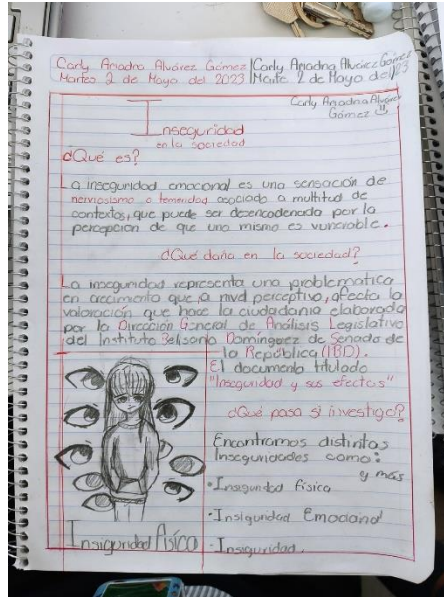 Carly Ariadna Alvárez Gómez | Carly Ariadna Alvárez Gómez
Martes 2 de Mayo del 2023 | Marte 2 de Mayo del 23
Carly Ariadna Alvárez
Gómez
Inseguridad
en la sociedad
¿Qué es?
La inseguridad emocional es una sensación de
nerviosismo o temeridad asociado a multitud de
contextos, que puede ser desencadenada por la
percepcion de que uno mismo es vunerable.
¿Qué daña en la sociedad?
La inseguridad representa una problematica
en crecimiento que, a nivel perceptivo, afecta la
valoración que hace la ciudadania elaborada
por la Dirección General de Análisis Legislativo
del Instituto Belisario Domínguez de Senado de
la República (IBD).
El documento titulado
"Inseguridad y sus efectos"
¿Qué pasa si investigo?
Encontramos distintas
Inseguridades como:
y más
• Inseguridad física
• Insiguridad Emocional
• Inseguridad.
Insiguridad Físico